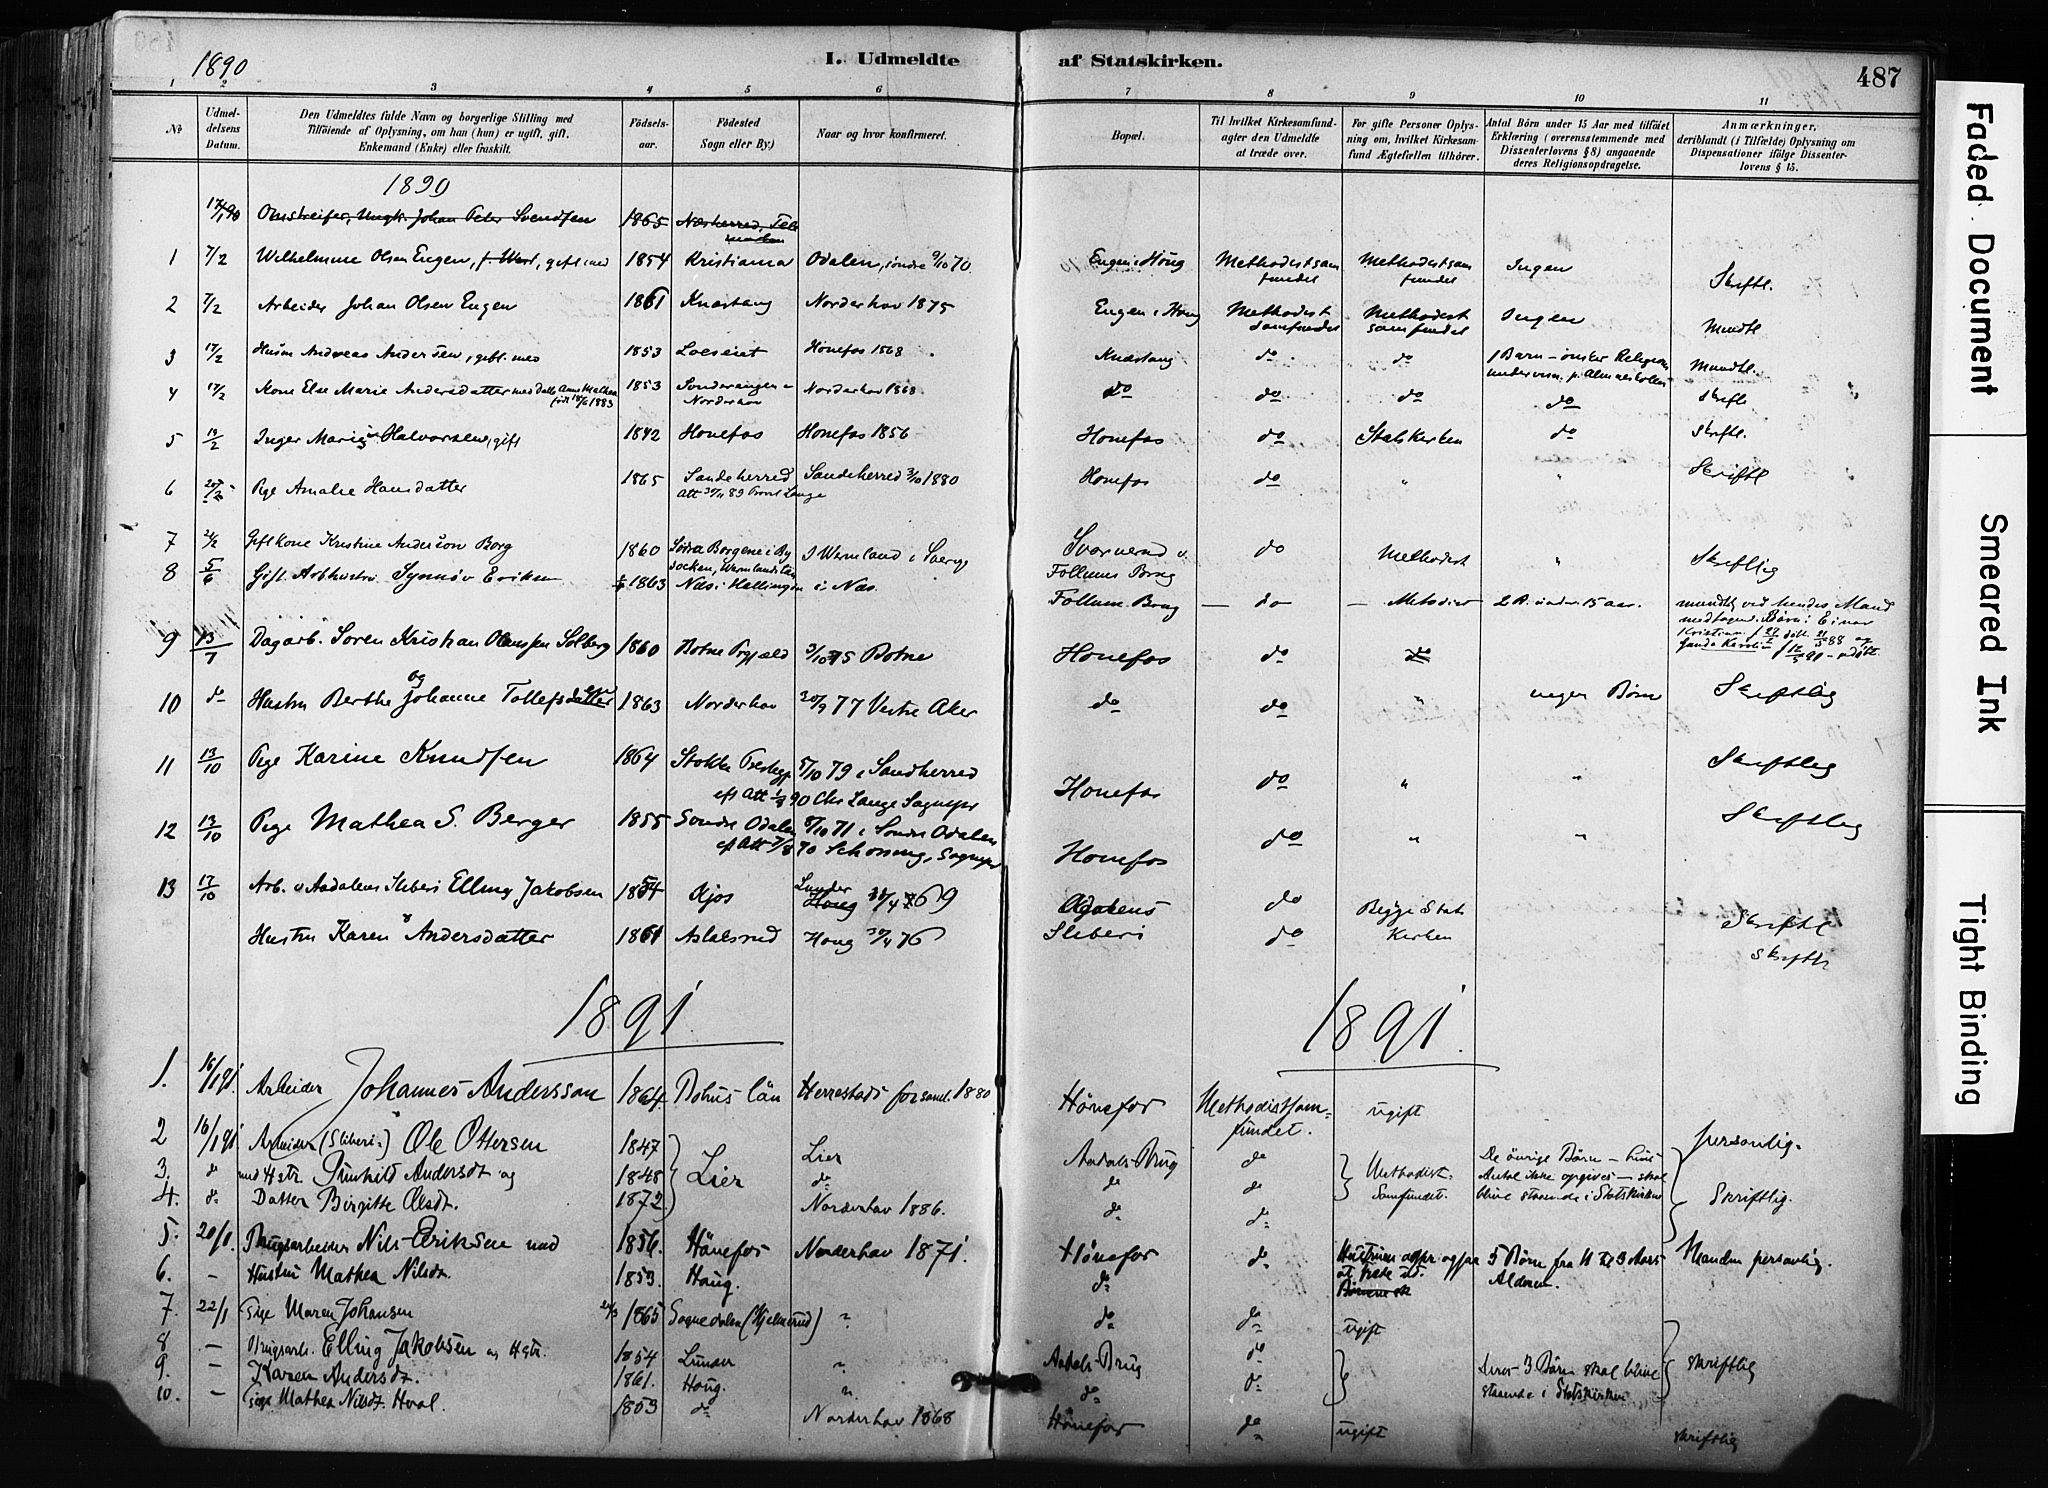 1890
I. Udmeldte af Statskirken. 487
1 2 3 4 5 6 7 8 9 10 11
No
Udmeldelsens Datum.
Den Udmeldtes fulde Navn og borgerlige Stilling med Tilföiende af Oplysning, om han (hun) er ugift, gift, Enkemand (Enke) eller fraskilt.
Födselsaar.
Födested Sogn eller By.)
Naar og hvor konfirmeret.
Bopæl.
Til hvilket Kirkesamfund agter den Udmeldte at træde over.
For gifte Personer Oplysning om, hvilket Kirkesamfund Ægtefællen tilhörer.
Antal Börn under 15 Aar med tilföiet Erklæring (overensstemmende med Dissenterlovens § 8) angaaende deres Religionsopdragelse.
Anmærkninger, deriblandt (i Tilfælde) Oplysning om Dispensationer ifölge Dissenterlovens § 15.
1890
17/1 90 Omstreifer, Ungk. Johan Peter Svendsen 1865
1 7/2 Wilhelmine Olsen Engen, gift med 1854 Kristiania Odalen, söndre 9/10 70 Engen i Houg Methodistsamfundet Methodistsamfundet Ingen Skriftl.
2 7/2 Arbeider Johan Olsen Engen 1861 Knestang Norderhov 1875 Engen i Houg Methodistsamfundet Methodistsamfundet Ingen Mundtl
3 17/2 Husm Andreas Andersen, gift med 1853 Hönefos 1868 Knestang do do 1 Barn – önsker Religionsundervisn. p. Almueskolen Mundtl.
4 17/2 Kone Else Marie Andersdatter med Datt. 1853 Norderhov Norderhov 1868 do do do do Skriftl
5 19/2 Inger Marie Halvorsen, gift 1842 Hönefos Hönefos 1856 Hönefos do Statskirken do Skriftl.
6 Pige Amalie Hansdatter 1865 Sandeherred Sandeherred 3/10 1880 Hönefos do " " Skriftl
Att 30/11 89 Provst Lange
7 Gift Kone Kristine Anderson Borg 1860 Södra Borgene i By socken, Wermlands län I Wermland i Sverge Follums Brug do Methodist " Skriftlig
8 5/6 Gift Arb.hustru Synnöv Eriksen 1863 Næs i Hallingen i Næs. Follum Brug – do – Metodist 2 B. under 15 aar. mundtlig ved hendes Mand
9 13/7 Dagarb. Sören Kristian Olenssen Solberg 1860 Botne Prgjæld 3/10 75 Botne Hönefos do do
10 do Hustru Berthe Johanne Tollefsdatter 1863 Norderhov 30/9 77 Vestre Aker do do " ingen Börn Skriftlig
11 13/10 Pige Karine Knudsen 1864 Stokke Prestegj 5/10 79 i Sandherred Hönefos do " " Skriftlig
eft Att 90 Chr Lange Sognepr
12 13/10 Pige Mathea S. Berger 1855 Söndre Odalen 8/10 71 i Söndre Odalen Hönefos do " " Skriftlig
13 17/10 Arb. v Aadalens Sliberi Elling Jakobsen 1854 Kjos Lunder 69 Aadalens do Begge Stats Skriftl
Hustru Karen Andersdatter 1861 Aslaksrud Houg 76 Sliberi do kirken Skriftl
1891 1891.
1. 16/1 91. Arbeider Johannes Andersson 1864. Bohus län Herrestads forsaml. 1880 Hönefos Methodistsamfundet. ugift personlig.
2 16/1 91 Arbeider (Sliberi) Ole Ottersen 1847 Lier Lier Aadals Brug do Methodist Samfundet. De övrige Börn – hvis Antal ikke opgives – skal blive staaende i Statskirken
3. do med Hstr Gunhild Andersdt og 1848 do do do Skriftlig.
4. do Datter Birgitte Olsdt. 1872 Norderhov 1886. do do
5. 20/1. Brugsarbeider Nils Eriksen med 1856. Hönefos Norderhov 1871. Hönefos do 5 Börn fra 11 til 3 Aars Alderen. Manden personlig.
6. – Hustru Mathea Nilsdt. 1853. Houg. do
7. 22/1 Pige Maren Johansen 1865 Sognedalen (Hjelmerud) " do do ugift
8 – Brugsarb. Elling Jakobsen og Hstr. 1854 Lunder " Aadals Brug do Deres 3 Börn skal blive staaende i Statskirken skriftlig
9. – Karen Andersdt. 1861. Houg. " do do
10. – Pige Mathea Nilsdt. Hval 1853 do Norderhov 1868 Hönefos do ugift skriftlig
Faded Document
Smeared Ink
Tight Binding